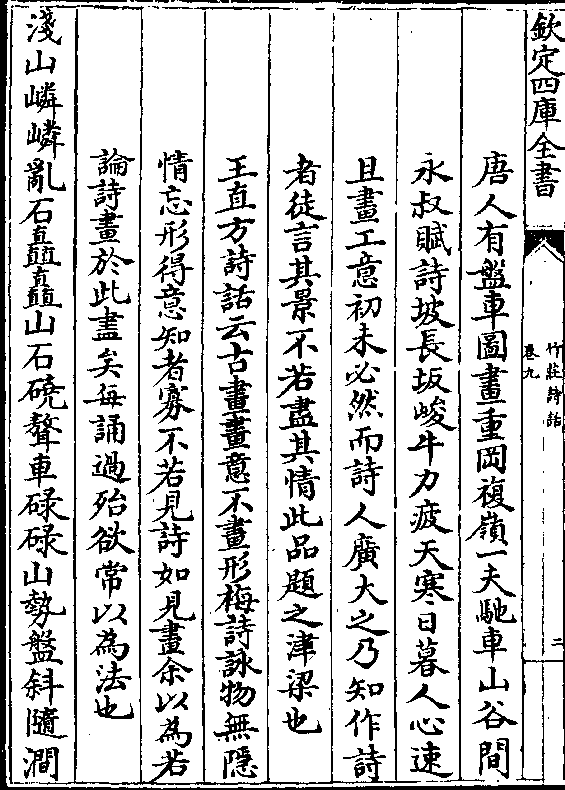 欽定四庫全書
竹莊詩話
卷九
二
唐人有盤車圖畫重岡複嶺一夫馳車山谷間
永叔賦詩坡長坂峻牛力疲天寒日暮人心速
且畫工意初未必然而詩人廣大之乃知作詩
者徒言其景不若盡其情此品題之津梁也
王直方詩話云古畫畫意不畫形梅詩詠物無隱
情忘形得意知者寡不若見詩如見畫余以為若
論詩畫於此盡矣每誦過殆欲常以為法也
淺山嶙嶙亂石矗矗山石磽聱車碌碌山勢盤斜隨澗